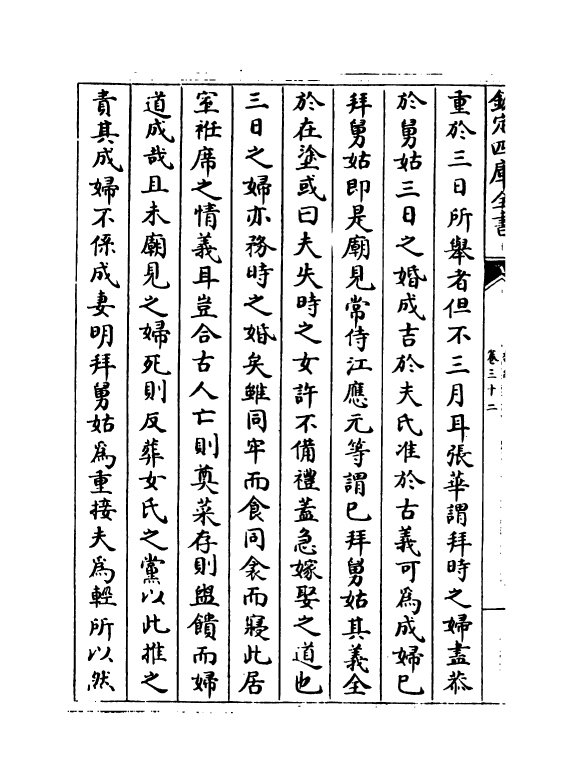 欽定四庫全書
卷三十二
重於三日所舉者但不三月耳張華謂拜時之婦盡恭
於舅姑三日之婚成吉於夫氏准於古義可為成婦已
拜舅姑即是廟見常侍江應元等謂已拜舅姑其義全
於在塗或曰夫失時之女許不備禮蓋急嫁娶之道也
三日之婦亦務時之婚矣雖同牢而食同衾而寢此居
室袵席之情義耳豈合古人亡則奠菜存則盥饋而婦
道成哉且未廟見之婦死則反葬女氏之黨以此推之
責其成婦不係成妻明拜舅姑為重接夫為輕所以然